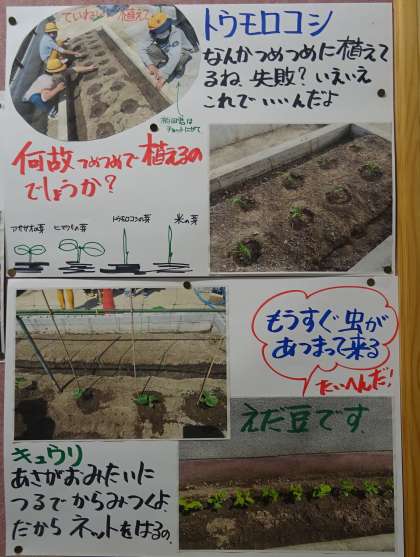 ていねいに植えて
トウモロコシ
なんかつめつめに植えて
るね、失敗？いえいえ
これでいいんだよ
何故つめつめで植えるの
でしょうか？
アサガオの芽
ヒマワリの芽
トウモロコシの芽
米の芽
もうすぐ虫が
あつまって来る
たいへんだ！
えだ豆です。
キュウリ
あさがおみたいに
つるでからみつくよ
だからネットをはるの。